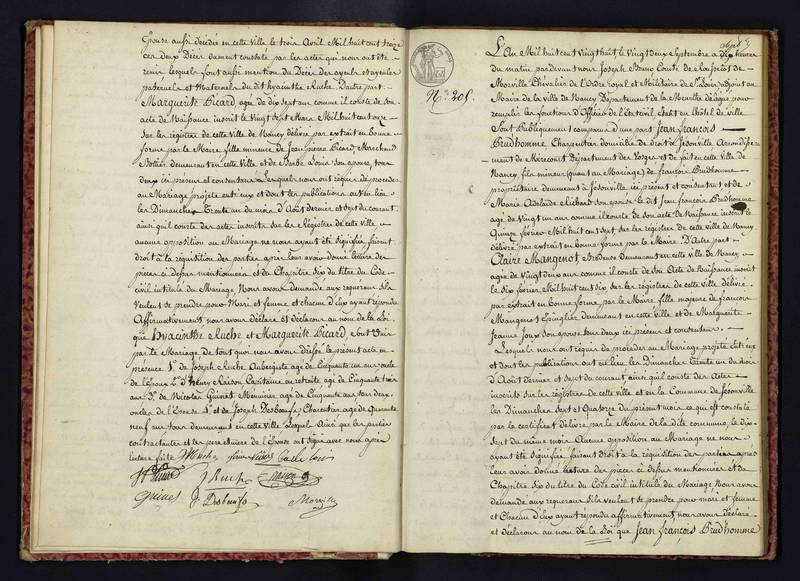 Epouse aussi décédée en cette ville le trois Avril Mil huit cent treize
ces deux Décès dument constatés par les actes qui nous ont été
remis lesquels font aussi mention du Décès des ayeuls et ayeules
paternels et Maternels du dit hyacinthe Ruche. D'autre part
Marguerite Picard agée de dix sept ans comme il conste de son
acte de Naissance inscrit le Vingt sept Mars Mil huit cent onze
sur les registres de cette Ville de Nancy délivré par extrait en bonne
forme par le Maire fille mineure de Jean pierre Picard Marchand
demeurant en cette ville et de Barbe son épouse, tous
deux ici présens et consentans. Lesquels nous ont requis de procéder
au Mariage projeté entr'eux et dont les publications ont eu lieu
les Dimanches Trente un du mois d'Août dernier et sept du courant
ainsi qu'il conste des actes inscrits sur les Registres de cette ville
aucune opposition au Mariage ne nous ayant été signifiée faisant
droit à la réquisition des parties après leur avoir donné lecture des
pièces ci dessus mentionnées et du Chapitre six du titre du Code
civil intitulé du Mariage, Nous avons demandé aux requérans s'ils
veulent se prendre pour Mari et femme et chacun d'Eux ayant répondu
Affirmativement, nous avons déclaré et déclarons au nom de la Loi
que Hyacinthe Ruche et Marguerite Picard, sont Unis
par le Mariage de tout quoi nous avons dressé le présent acte en
présence 1° de Joseph Ruche Aubergiste agé de Cinquante un ans oncle
de l'Epoux 2° d'Henry Raison Capitaine en retraite agé de Cinquante trois
ans 3° de Nicolas Guinet Menuisier agé de Cinquante ans tous deux
oncles de l'Epouse 4° et de Joseph Desboeufs Charpentier agé de Quarante
neuf ans tous demeurant en cette Ville lesquels Ainsi que les parties
contractantes et les pere et mere de l'Epouse ont signé avec nous après
lecture faite
J. Ruche
Raison
J. Desboeufs
Morville
N° 205.
L'An Mil huit cent vingt huit le Vingt deux Septembre à dix heures
du matin par devant nous Joseph Bruno Comte de
Morville Chevalier de l'Ordre royal et Militaire de St Louis adjoint au
Maire de la Ville de Nancy Département de la Meurthe délégué pour
remplir les fonctions d'Officier de l'état civil, Est en l'hôtel de Ville
Sont Publiquement comparus d'une part Jean françois
Prudhomme Charpentier domicilié de droit à Jésonville Arrondisse=
ment de Mirecourt Département des Vosges et de fait en cette ville de
Nancy, fils mineur (quant au Mariage) de françois Prudhomme
propriétaire demeurant à Jésonville ici présent et consentant et de
Marie Adélaïde Richard son épouse le dit Jean françois Prudhomme
agé de Vingt un ans comme il conste de son acte de Naissance inscrit le
Quinze février Mil huit cent sept sur les registres de cette ville de Nancy
délivré par extrait en bonne forme par le Maire. D'Autre part
Claire Mangenot Brodeuse demeurant en cette ville de Nancy
agée de Vingt deux ans comme il conste de son Acte de Naissance inscrit
le dix février Mil huit cent six sur les registres de cette ville délivré
par extrait en bonne forme par le Maire fille majeure de françois
Mangenot Epinglier demeurant en cette ville et de Marguerite
Jeanne son épouse tous deux ici présens et consentans.
Lesquels nous ont requis de procéder au Mariage projeté entr'eux
et dont les publications ont eu lieu les Dimanches Trente un du mois
d'Août dernier et sept du courant ainsi qu'il conste des Actes
inscrits sur les registres de cette ville et en la Commune de Jésonville
les Dimanches Sept et Quatorze du présent mois ce qui est constaté
par le certificat délivré par le Maire de la dite commune, le dix
sept du même mois. Aucune opposition au Mariage ne nous
ayant été signifiée faisant Droit à la réquisition des parties après
leur avoir donné lecture des pièces ci dessus mentionnées et du
Chapitre six du titre du Code civil intitulé du Mariage, Nous avons
demandé aux requérans s'ils veulent se prendre pour mari et femme
et Chacun d'Eux ayant répondu affirmativement nous avons Déclaré
et déclarons au nom de la Loi que Jean françois Prudhomme